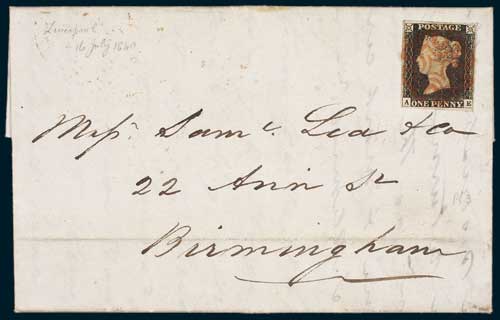 Liverpool
16 July 1840
POSTAGE
A ONE PENNY E
Messrs. Saml. Lea & Co
22 Ann St
Birmingham